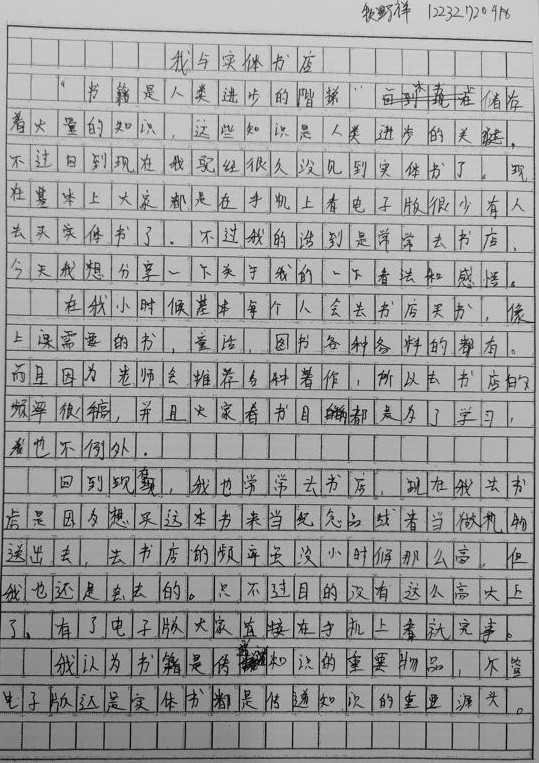 12232720918
我与实体书店
"书籍是人类进步的阶梯" 书本 储存
着大量的知识，这些知识是人类进步的关键。
不过回到现在我已经很久没见到实体书了。现
在基本上大家都是在手机上看电子版很少有人
去买实体书了。不过我的话到是常常去书店，
今天我想分享一下关于我的一下看法和感悟。
在我小时候基本每个人会去书店买书，像
上课需要的书，童话，图书各种各料的都有。
而且因为老师会推荐各种著作，所以去书店的
频率很高，并且大家看书目都是为了学习，
我也不例外.
回到现在，我也常常去书店，现在我去书
店是因为想买这本书来当纪念品或者当做礼物
送出去，去书店的频率虽没小时候那么高，但
我也还是会去的。只不过目的没有这么高大上
了，有了电子版大家直接在手机上看就完事。
我认为书籍是传递知识的重要物品，不管
电子版还是实体书都是传递知识的重要源头。